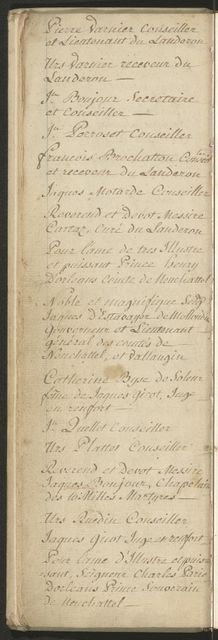 Pierre Varnier Conseiller
et Lieutenant du Landeron
Urs Varnier receveur du
Landeron —
Jn. Bonjour Secretaire
et Conseiller —
Jn. Perroset Conseiller
François Brochatton Conser
et receveur du Landeron
Jaques Motarde Conseiller
Reverend et devot Messire
Curé du Landeron
Pour l'ame de tres Illustre
et puissant Prince Henry
Dorleans Comte de Neuchattel
Noble et magnifique Seigr
Jaques d'Estavayer de
Gouverneur et Lieutenant
general des comtés de
Neuchattel, et vallangin
Catherine Byse de
fame de Jaques Girot, Juge
en renfort —
Jn. Quellet Conseiller
Urs Plattet Conseiller
Reverend et Devot Messire
Jaques Bonjour, Chapelain
des 10 Milles Martyres —
Urs Ruedin Conseiller
Jaques Girot Juge en renfort
Pour l'ame d'Illustre et puis
sant, Seigneur Charles Paris
Dorleans Prince Souverain
de Neuchattel —